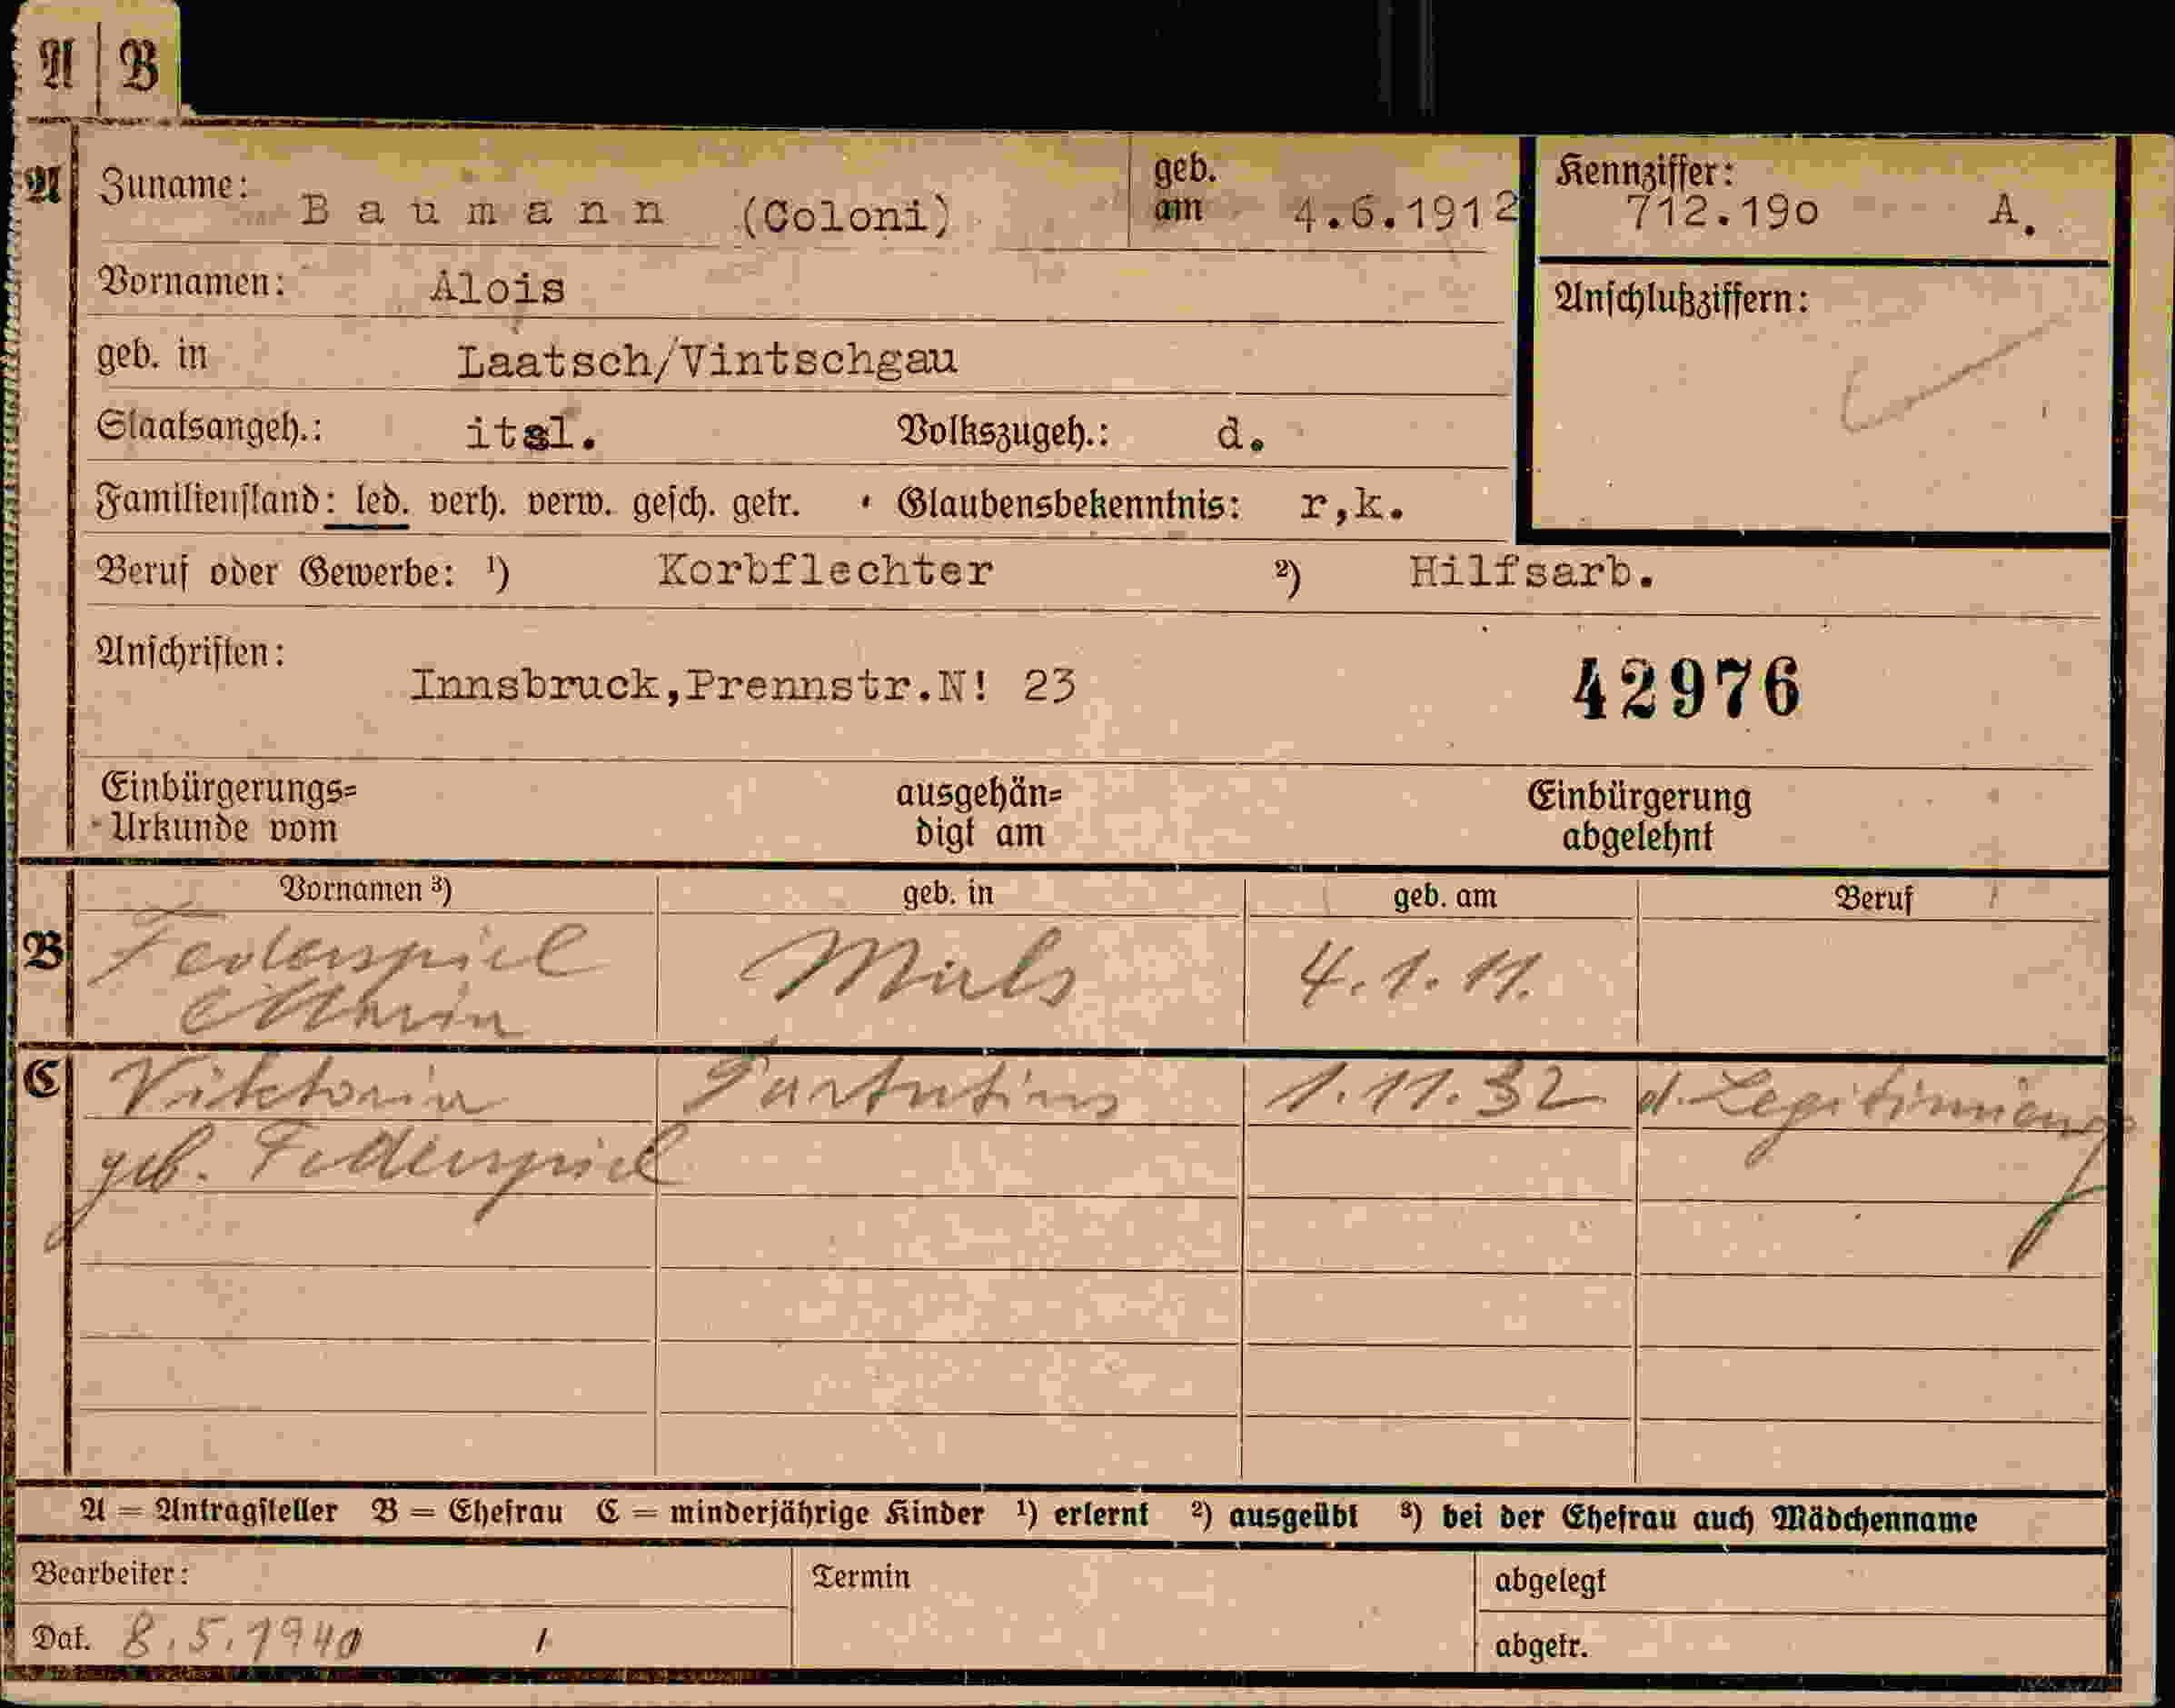 A | B
A Zuname: Baumann (Coloni) geb. am 4.6.1912 Kennziffer: 712.190 A.
Vornamen: Alois Anschlußziffern:
geb. in Laatsch/Vintschgau
Staatsangeh.: ital. Volkszugeh.: d.
Familienstand: led. verh. verw. gesch. getr. Glaubensbekenntnis: r,k.
Beruf oder Gewerbe: ¹) Korbflechter ²) Hilfsarb.
Anschriften: Innsbruck,Prennstr.N! 23 42976
Einbürgerungs= ausgehän= Einbürgerung
Urkunde vom digt am abgelehnt
Vornamen ³) geb. in geb. am Beruf
B Federspiel Mals 4.1.11.
C Viktoria 1.11.32 d.
geb. Federspiel
A = Antragsteller B = Ehefrau C = minderjährige Kinder ¹) erlernt ²) ausgeübt ³) bei der Ehefrau auch Mädchenname
Bearbeiter: Termin abgelegt
Dat. 8.5.1940 abgetr.